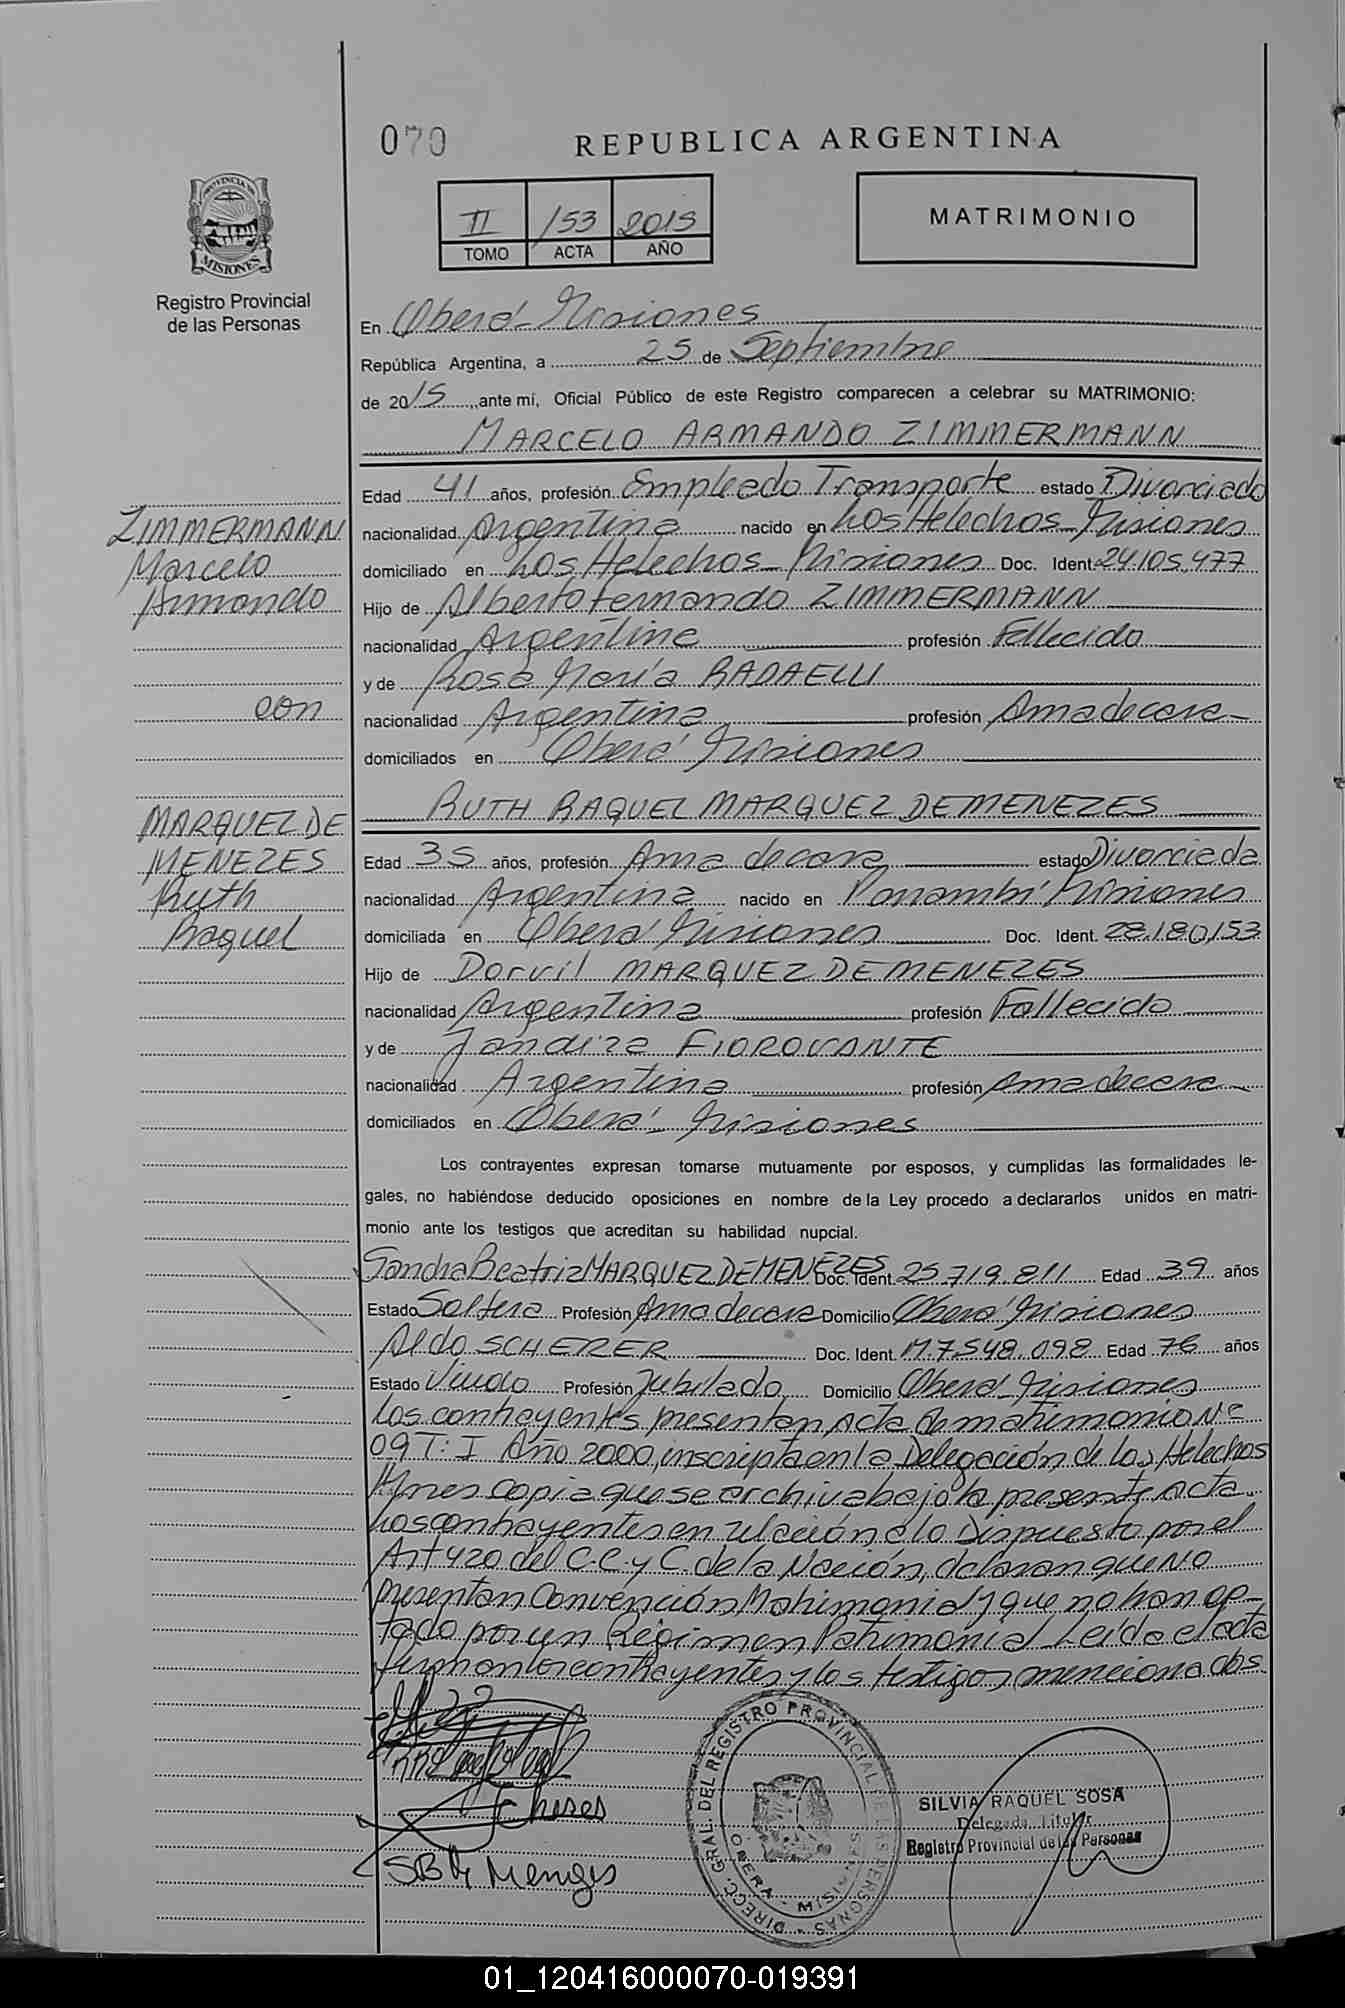 070
REPUBLICA ARGENTINA
PROVINCIA DE
MISIONES
Registro Provincial
de las Personas
II 153 2015
TOMO ACTA AÑO
MATRIMONIO
En Oberá - Misiones
República Argentina, a 25 de Septiembre
de 2015, ante mí, Oficial Público de este Registro comparecen a celebrar su MATRIMONIO:
MARCELO ARMANDO ZIMMERMANN
Edad 41 años, profesión Empleado Transporte estado Divorciado
ZIMMERMANN
nacionalidad Argentina nacido en Los Helechos - Misiones
Marcelo
domiciliado en Los Helechos - Misiones Doc. Ident. 24.105.477
Armando
Hijo de Alberto Fernando ZIMMERMANN
nacionalidad Argentina profesión Fallecido
y de Rosa María RADAELLI
con
nacionalidad Argentina profesión Ama de casa
domiciliados en Oberá Misiones
RUTH RAQUEL MARQUEZ DE MENEZES
MARQUEZ DE
MENEZES
Edad 35 años, profesión Ama de casa estado Divorciada
Ruth
nacionalidad Argentina nacido en Panambí Misiones
Raquel
domiciliada en Oberá Misiones Doc. Ident. 28.180.153
Hijo de Dorvil MARQUEZ DE MENEZES
nacionalidad Argentina profesión Fallecido
y de Jandira FIOROVANTE
nacionalidad Argentina profesión Ama de casa
domiciliados en Oberá - Misiones
Los contrayentes expresan tomarse mutuamente por esposos, y cumplidas las formalidades le-
gales, no habiéndose deducido oposiciones en nombre de la Ley procedo a declararlos unidos en matri-
monio ante los testigos que acreditan su habilidad nupcial.
Sandra Beatriz MARQUEZ DE MENEZES Doc. Ident. 25.719.811 Edad 39 años
Estado Soltera Profesión Ama de casa Domicilio Oberá Misiones
Aldo SCHERER Doc. Ident. M.7.548.098 Edad 76 años
Estado Viudo Profesión Jubilado Domicilio Oberá - Misiones
Los contrayentes presentan Acta de matrimonio Nº
09 T: I Año 2000, inscripta en la Delegación de Los Helechos
Mnes copia que se archiva bajo la presente acta.
Los contrayentes en relación a lo Dispuesto por el
Art 420 del C.C. y C. de la Nación, declaran que NO
presentan Convención Matrimonial y que no han op-
tado por un Régimen Patrimonial. Leída el acta
firman los contrayentes y los testigos mencionados.
DIRECC. GRAL. DEL REGISTRO PROVINCIAL DE LAS PERSONAS
OBERA - MISIONES
SILVIA RAQUEL SOSA
Delegada Titular
Registro Provincial de las Personas
01_120416000070-019391